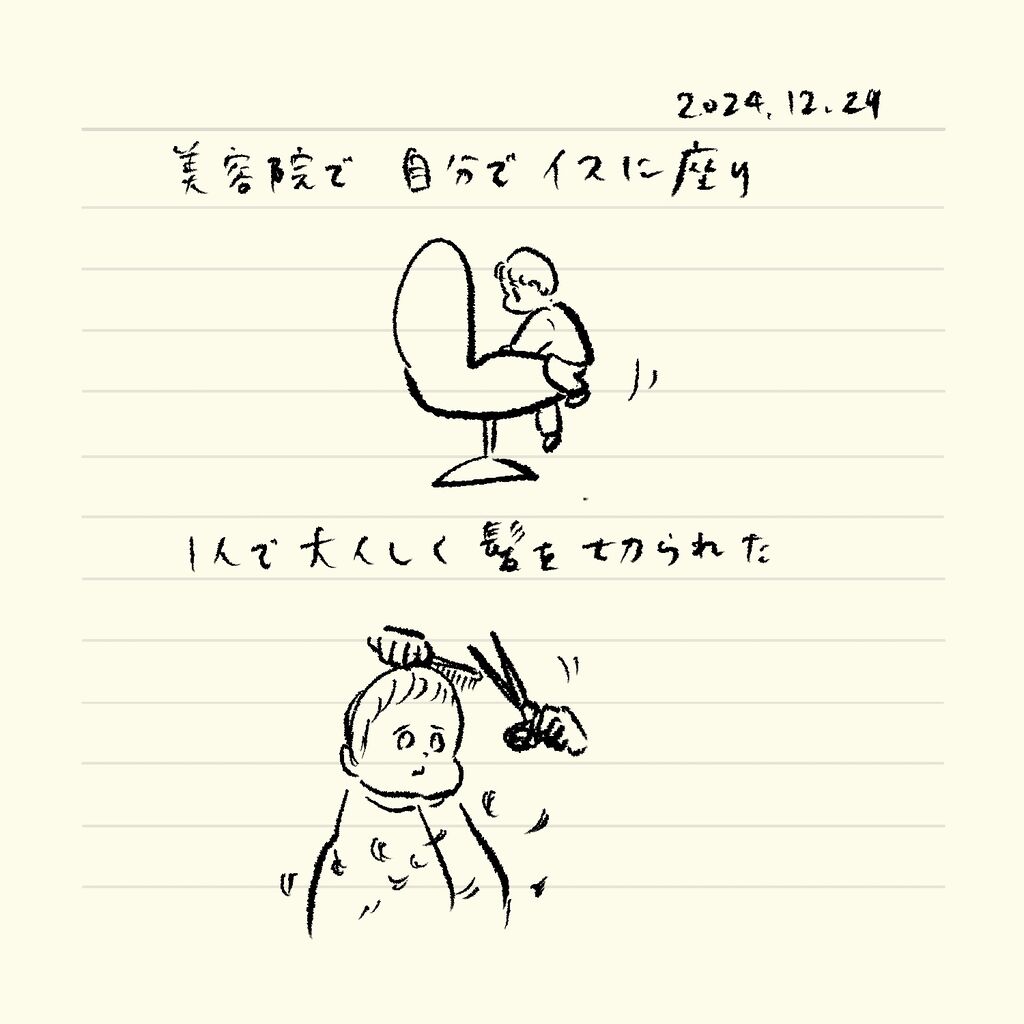 2024.12.29
美容院で 自分で イスに 座り
1人で 大人しく 髪を 切られた